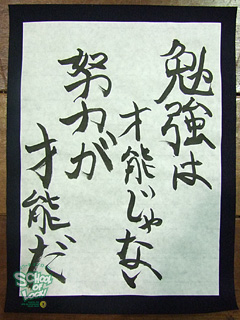 勉強は
才能じゃない
努力が
才能だ
SCHOOL
OF
LOCK!